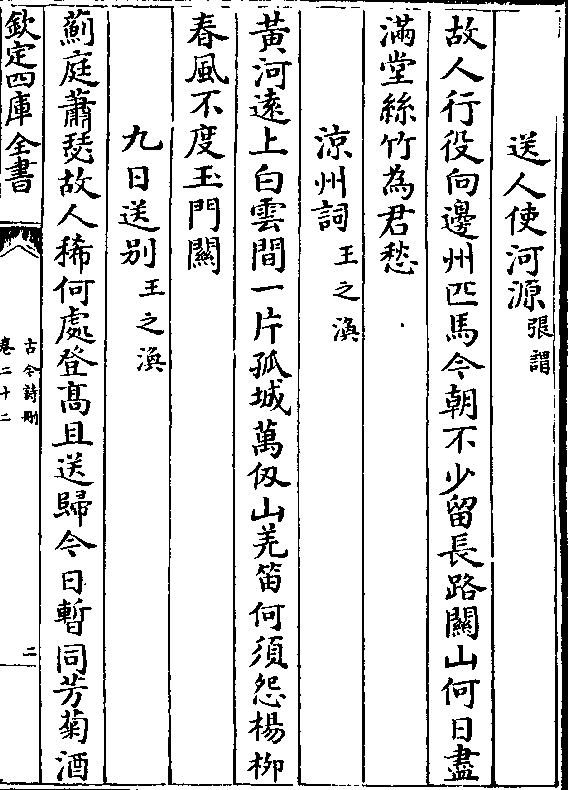 送人使河源 張謂
故人行役向邊州匹馬今朝不少留長路關山何日盡
滿堂絲竹為君愁
涼州詞 王之渙
黃河逺上白雲間一片孤城萬仭山羌笛何須怨楊栁
春風不度玉門關
九日送别 王之渙
薊庭蕭瑟故人稀何處登髙且送歸今日暫同芳菊酒
欽定四庫全書
古今詩刪
卷二十二
二